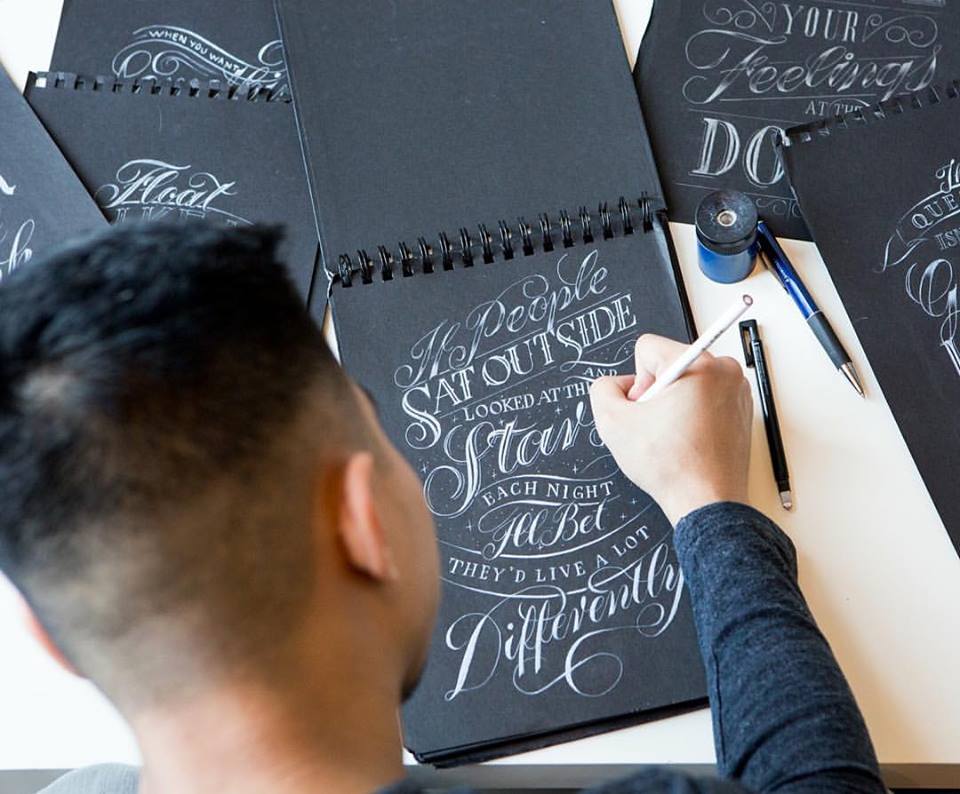 WHEN YOU WANT
Float
YOUR
Feelings
AT THE
DO
If People
SAT OUTSIDE
AND
LOOKED AT THE
Stars
EACH NIGHT
I'll Bet
THEY'D LIVE A LOT
Differently